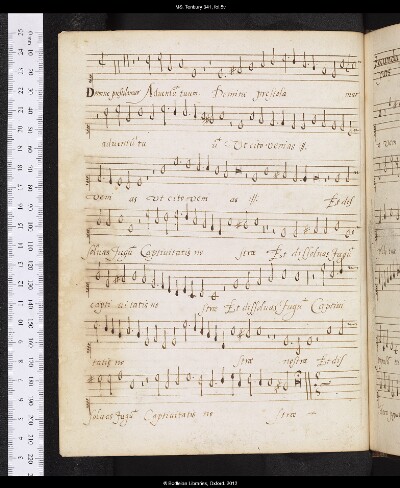 MS. Tenbury 341, fol.5v
Domine præstolamur Adventū tuum. Domine præstola mur
adventū tu ū Ut cito venias ij.
veni as ut cito veni as ij. Et dis
solvas Jugū Captivitatis no stræ Et dissolvas Jugū
capti vitatis no stræ Et dissolvas Jugū Captivi
tatis no stræ nostræ Et dis
solvas Jugū Captivitatis no stræ
© Bodleian Libraries, Oxford, 2012